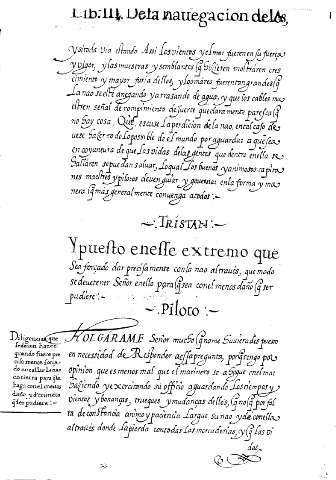 Lib: III, De la nauegacion de los,
y si toda via estando Assi Los vientos y el mar fueren en su fuerça
y vigor, y las muestras y semblantes q̃ hizieren mostraren cres
cimiento y mayor furia dellos, y los mares fueren tan grandes q̃
La nao se este anegando y arrasando de agua, y que los cables mu
estren señal de rompimiento de suerte que claramente paresca q̃
no hay cosa, Que, escuse La perdicion de la nao, en tal caso de
uese hazer todo Lo possible de el mundo por aguardar a que sea
en coyuntura de que Las vidas de las gentes que dentro en ella se
hallaren se puedan saluar, Lo qual Los buenos y animosos capita
nes maestres y pilotos deuen guiar y gouernar en la forma y ma
nera q̃ mas generalmente conuenga a todos
TRISTAN
Y puesto en esse extremo que
Sea forçado dar precisamente con la nao al traues, que modo
se deue tener Señor en ella para q̃ sea con el menos daño q̃ ser
pudiere
Piloto
Diligencias que
se deuen hazer
quando fuere pre
ciso menos força
do encallar La nao
en tierra para q̃ se
haga con el menos
daño, y detrimento
q̃ ser pudiere
HOLGARAME Señor mucho q̃ no me huuierades puesto
en necessidad de Responder a essa pregunta, porq̃ tengo por
opinion que es menos mal que el marinero se ahogue en el mar
haziendo y exercitando su officio aguardando Los tiempos y
vientos y bonanças, trueques y mudanças dellos, q̃ no q̃ por fal
ta de constancia animo y paciencia Largue su nao y de con ella
al traues donde La pierda con todas Las mercaderias, y q̃ las vi
das